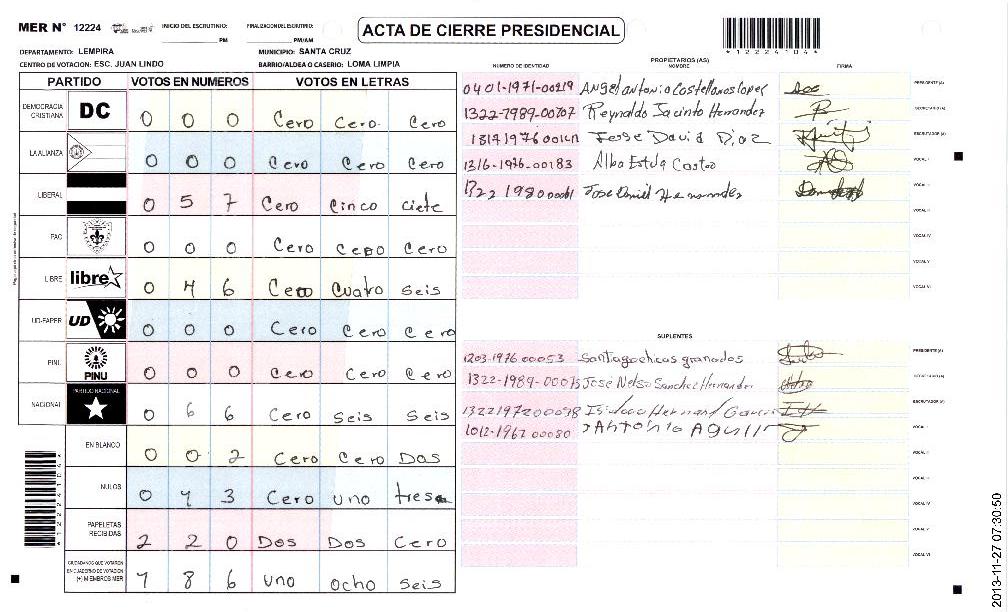 MER N° 12224 INICIO DEL ESCRUTINIO: PM FINALIZACION DEL ESCRUTINIO: PM/AM
ACTA DE CIERRE PRESIDENCIAL
*12224104*
DEPARTAMENTO: LEMPIRA MUNICIPIO: SANTA CRUZ
CENTRO DE VOTACION: ESC. JUAN LINDO BARRIO/ALDEA O CASERIO: LOMA LIMPIA
PARTIDO VOTOS EN NUMEROS VOTOS EN LETRAS
DEMOCRACIA CRISTIANA DC 0 0 0 Cero Cero Cero
LA ALIANZA 0 0 0 Cero Cero Cero
LIBERAL 0 5 7 Cero Cinco ciete
PAC 0 0 0 Cero Cero Cero
LIBRE libre 0 4 6 Cero Cuatro seis
UD-FAPER UD 0 0 0 Cero Cero Cero
PINU PINU 0 0 0 Cero Cero Cero
NACIONAL PARTIDO NACIONAL 0 6 6 Cero seis seis
EN BLANCO 0 0 2 Cero Cero Dos
NULOS 0 1 3 Cero uno tres
PAPELETAS RECIBIDAS 2 2 0 Dos Dos Cero
CIUDADANOS QUE VOTARON EN CUADERNO DE VOTACION (+) MIEMBROS MER 1 8 6 uno ocho seis
*12224104*
PROPIETARIOS (AS)
NUMERO DE IDENTIDAD NOMBRE FIRMA
0401-1971-00219 Angel antonio Castellanos lopez PRESIDENTE (A)
1322-1989-00707 Reynaldo Jacinto Hernandez SECRETARIO (A)
Jesse David Diaz ESCRUTADOR (A)
1316-1976-00183 Alba Estela Castro VOCAL I
1322 1980 00061 Jose Daniel Hernandez VOCAL II
VOCAL III
VOCAL IV
VOCAL V
VOCAL VI
SUPLENTES
1203-1976 00053 Santiago chicas granados PRESIDENTE (A)
1322-1989-00073 Jose Nelso Sanchez Hernandez SECRETARIO (A)
1322197200098 Isidoro Hernand Garcia ESCRUTADOR (A)
1012-1967 00080 Antonio Aguilr VOCAL I
VOCAL II
VOCAL III
VOCAL IV
VOCAL V
VOCAL VI
2013-11-27 07:30:50